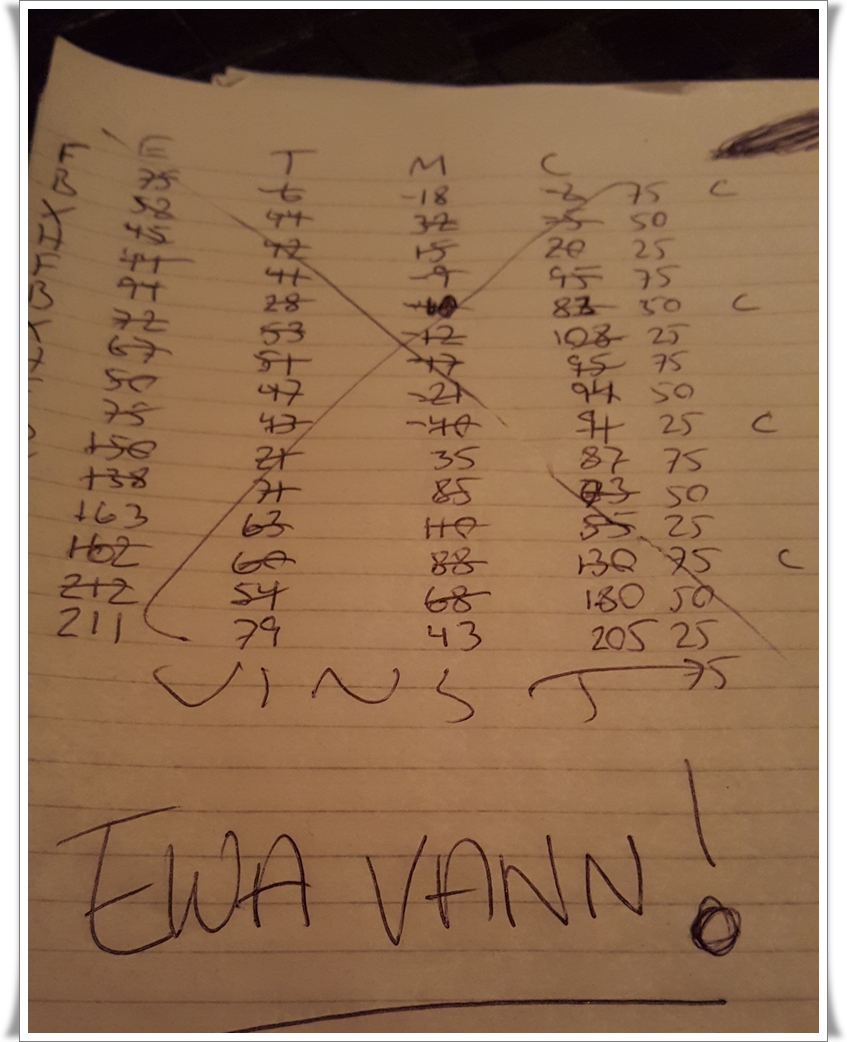 F E T M C
B 75 -6 -18 -3 75 C
X 52 44 32 75 50
45 42 15 20 25
F 44 41 -9 95 75
B 94 28 83 50 C
X 72 53 -12 108 25
67 51 -17 95 75
50 47 -21 94 50
75 43 -40 91 25 C
150 21 35 87 75
138 71 85 50
163 63 110 55 25
162 60 88 130 75 C
212 54 68 180 50
211 79 43 205 25
VINST 75
EWA VANN!